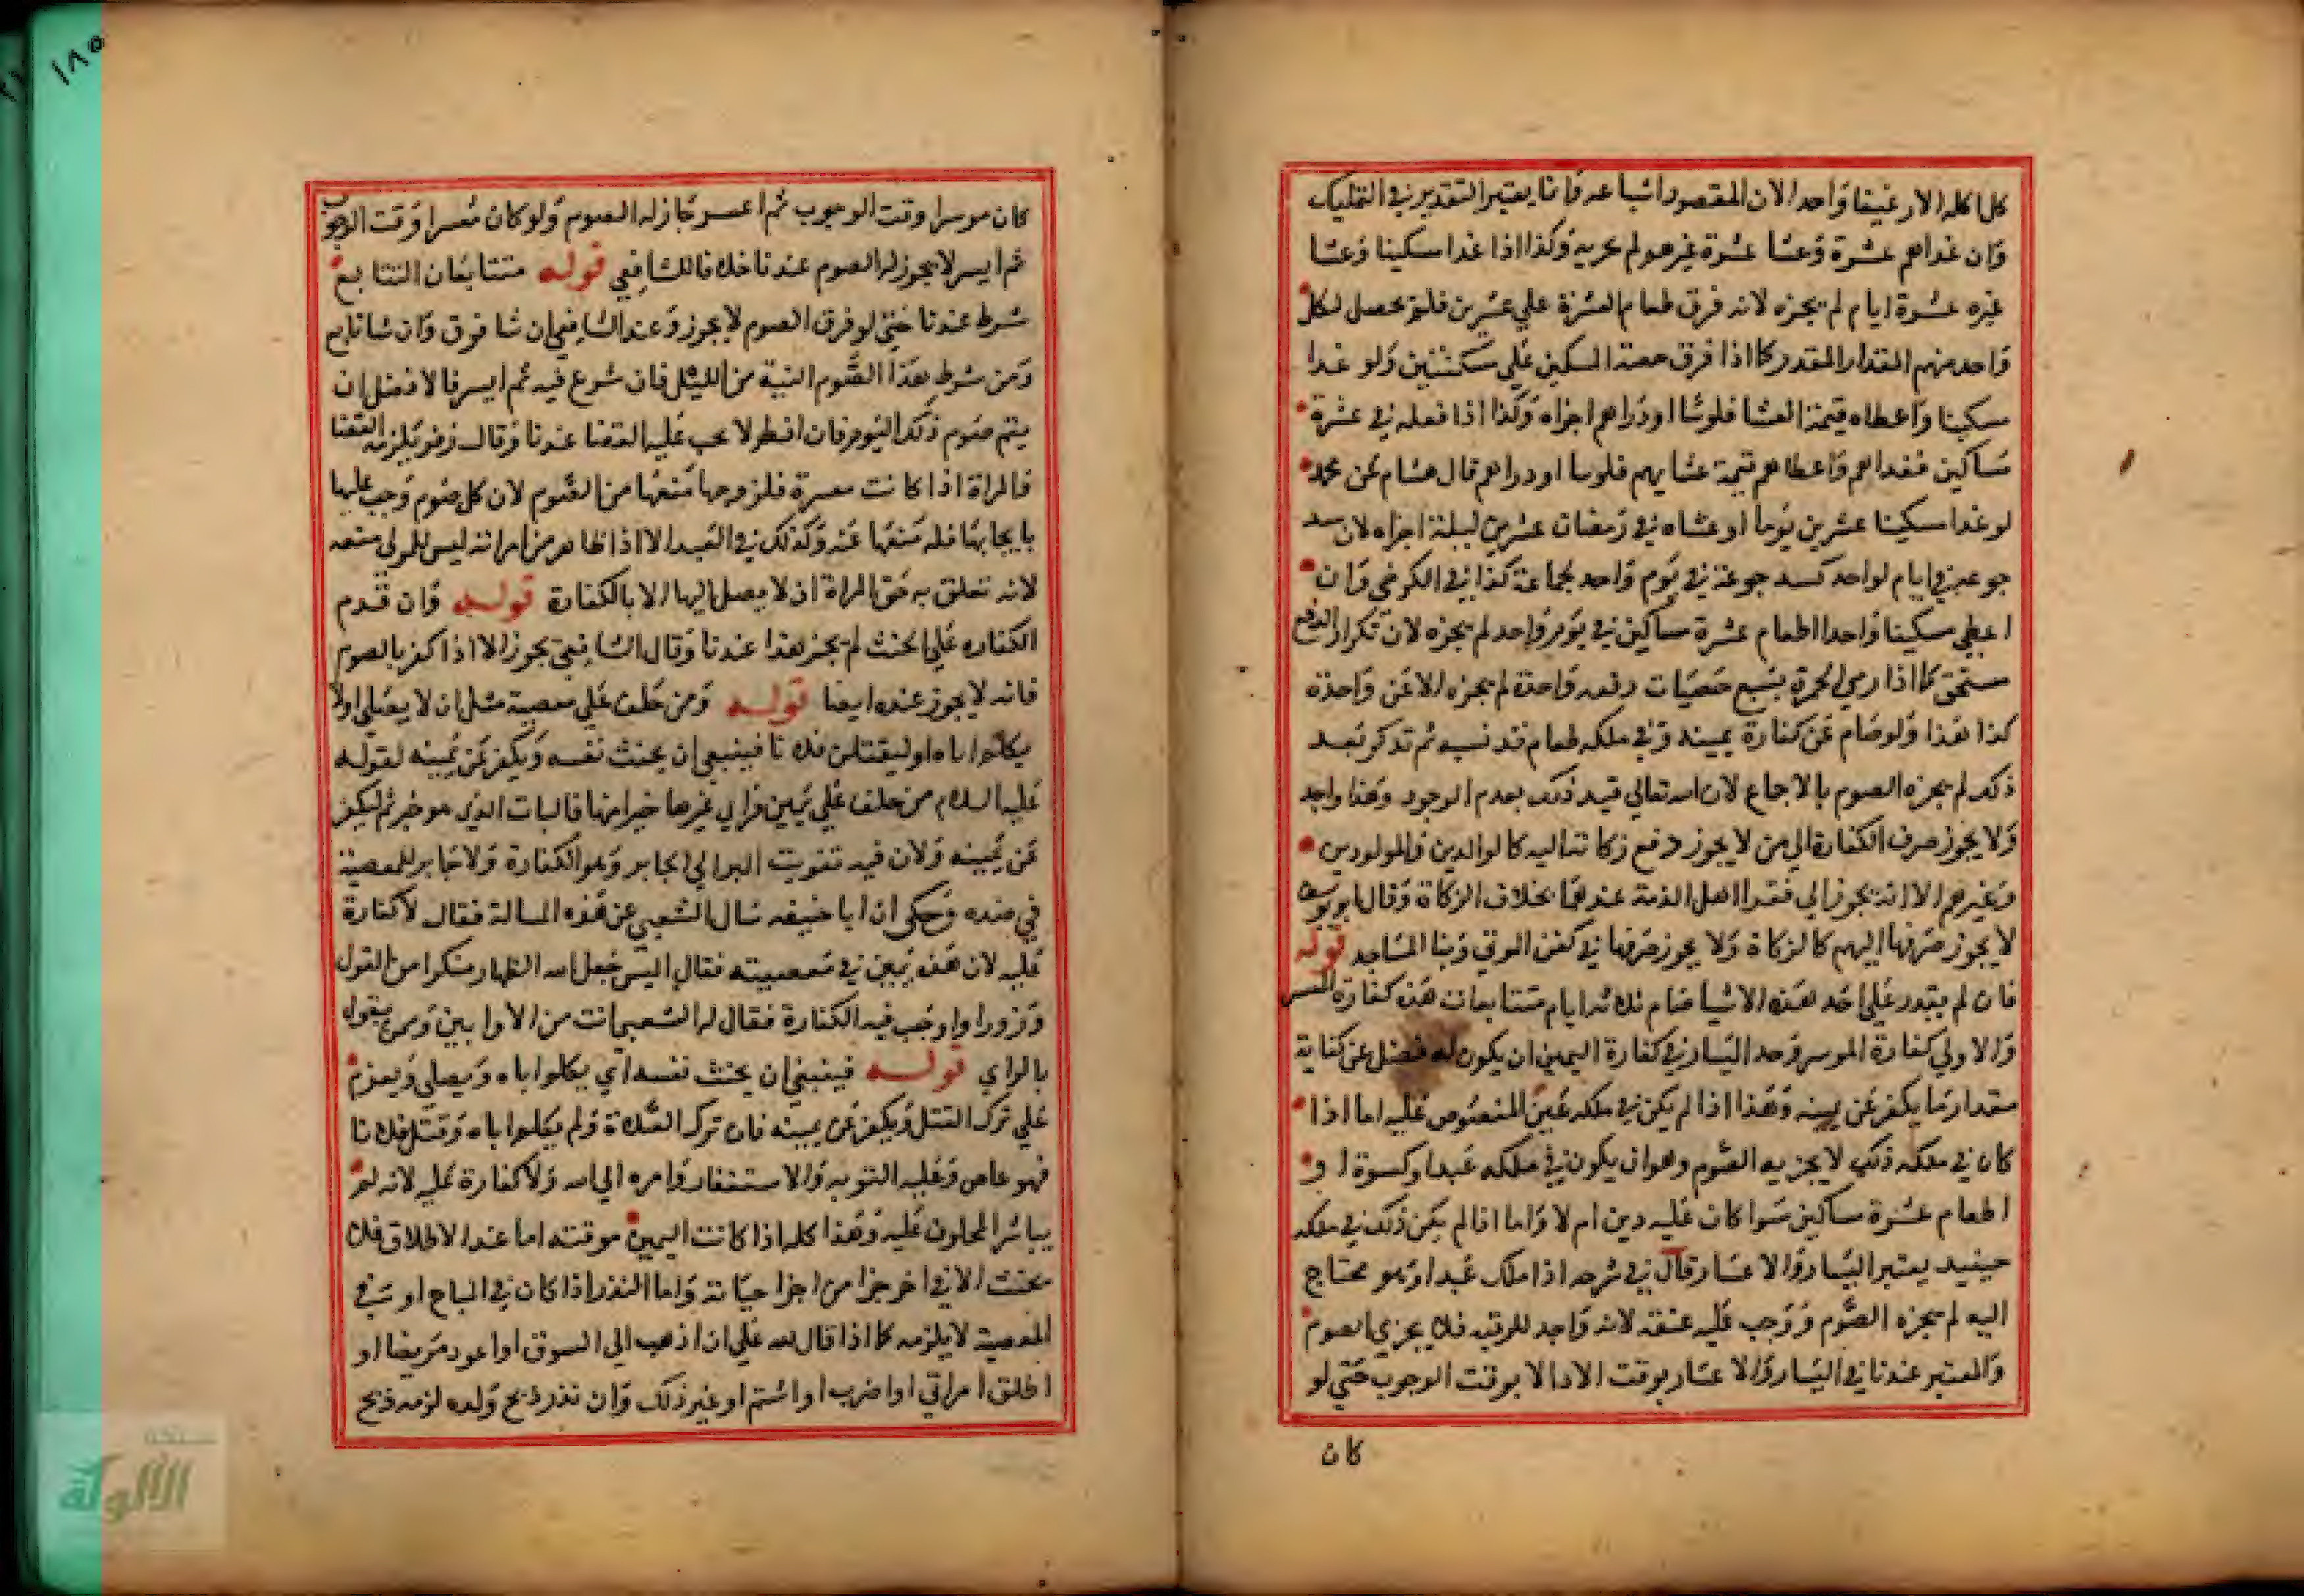 كل اكله الا رغيفا واحدا لان المقصود اشباعه وانما يعتبر التقدير في التمليك
وان غداهم عشرة وعشا عشرة غيرهم لم يجزيه وكذا اذا غدا مسكينا وعشا
غيره عشرة ايام لم يجزه لانه فرق طعام العشرة علي عشرين فلم يحصل لكل
واحد منهم المقدار المقدر كما اذا فرق حصة المسكين علي مسكينين ولو غدا
مسكينا واعطاه قيمة العشا فلوسا او دراهم اجزاه وكذا اذا فعله في عشرة
مساكين فغداهم واعطاهم قيمة عشايهم فلوسا او دراهم قال هشام عن محمد
لو غدا مسكينا عشرين يوما او عشاه في رمضان عشرين ليلة اجزاه لان سد
جوعته في ايام لواحد كسد جوعة في يوم واحد لجماعة كذا في الكرخي وان
اعطي مسكينا واحدا طعام عشرة مساكين في يوم واحد لم يجزه لان تكرار الدفع
مستحق كما اذا رمي الجمرة بسبع حصيات دفعه واحدة لم يجزه الا عن واحدة
كذا هذا ولو صام عن كفارة يمينه وفي ملكه طعام قد نسيه ثم تذكر بعد
ذلك لم يجزه الصوم بالاجماع لان الله تعالي قيد ذلك بعدم الوجود وهذا واجد
ولا يجوز صرف الكفارة الي من لا يجوز دفع زكاته اليه كالوالدين والمولودين
وغيرهم الا انه يجوز الي فقرا اهل الذمة عندهما بخلاف الزكاة وقال ابو يوسف
لا يجوز صرفها اليهم كالزكاة ولا يجوز صرفها في كفن الموتي وبنا المساجد قوله
فان لم يقدر علي احد هذه الاشيا صام ثلاثة ايام متتابعات هذه كفارة المعسر
والاولي كفارة الموسر وحد اليسار في كفارة اليمين ان يكون له فضل عن كفاية
مقدار ما يكفر عن يمينه وهذا اذا لم يكن في ملكه عين المنصوص عليه اما اذا
كان في ملكه ذلك لا يجزيه الصوم وهو ان يكون في ملكه عبد او كسوة او
اطعام عشرة مساكين سوا كان عليه دين ام لا واما اذا لم يكن ذلك في ملكه
حينيد يعتبر اليسار والاعسار قال في شرحه اذا ملك عبدا وهو محتاج
اليه لم يجزه الصوم ووجب عليه عتقه لانه واجد للرقبه فلا يجزي الصوم
والمعتبر عندنا في اليسار والاعسار بوقت الادا لا بوقت الوجوب حتي لو
كان
١٨٥
كان موسرا وقت الوجوب ثم اعسر جاز له الصوم ولو كان معسرا وقت الوجوب
ثم ايسر لا يجوز له الصوم عندنا خلافا للشافعي قوله متتابعان التتابع
شرط عندنا حتي لو فرق الصوم لا يجوز وعند الشافعي ان شا فرق وان شا تابع
ومن شرط هذا الصوم النية من الليل فان شرع فيه ثم ايسر فالافضل ان
يتم صوم ذلك اليوم فان افطر لا يجب عليه القضا عندنا وقال زفر يلزمه القضا
فالمراة اذا كانت معسرة فلزوجها منعها من الصوم لان كل صوم وجب عليها
بايجابها فله منعها عنه وكذلك في العبد الا اذا ظاهر من امراته ليس للمولي منعه
لانه تعلق به حق المراة ان لا يصل اليها الا بالكفارة قوله وان قدم
الكفاره علي الحنث لم يجز هذا عندنا وقال الشافعي يجوز الا اذا كفر بالصوم
فانه لا يجوز عنده ايضا قوله ومن حلف علي معصية مثل ان لا يصلي اولا
يكلم اباه او ليقتلن فلانا فينبغي ان يحنث نفسه ويكفر عن يمينه لقوله
عليه السلام من حلف علي يمين وراي غيرها خيرا منها فاليات الذي هو خير ثم ليكفر
عن يمينه ولان فيه تفويت البر الي الجابر وهو الكفارة ولا جابر للمعصية
في ضده وحكي ان ابا حنيفه سال الشعبي عن هذه المسالة فقال لا كفارة
عليه لان هذه يمين في معصيته فقال اليس جعل الله الظهار منكرا من القول
وزورا واوجب فيه الكفارة فقال له الشعبي انت من الاراييين وممن يقول
بالراي قوله فينبغي ان يحنث نفسه اي يكلم اباه ويصلي ويعزم
علي ترك القتل ويكفر عن يمينه فان ترك الصلاة ولم يكلم اباه وقتل فلانا
فهو عاص وعليه التوبه والاستغفار وامره الي الله ولا كفارة عليه لانه لم
يباشر المحلوف عليه وهذا كله اذا كانت اليمين موقته اما عند الاطلاق فلا
يحنث الا في اخر جزا من اجزا حياته واما النذر اذا كان في المباح او في
المعصية لا يلزمه كما اذا قال لله علي ان اذهب الي السوق او اعود مريضا او
اطلق امراتي او اضرب او اشتم او غير ذلك وان نذر ذبح ولده لزمه ذبح
الألوكة